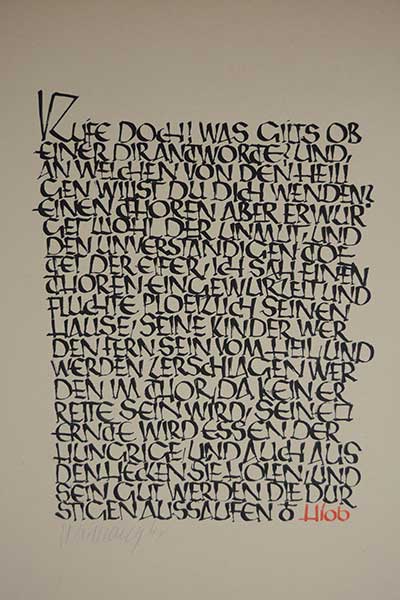 RUFE DOCH! WAS GILTS OB
EINER DIR ANTWORTE? UND,
AN WELCHEN VON DEN HEILI
GEN WILLST DU DICH WENDEN?
EINEN THOREN ABER ERWÜR
GET WOHL DER UNMUT, UND
DEN UNVERSTÄNDIGEN TOE
TET DER EIFER, ICH SAH EINEN
THOREN EINGEWURZELT UND
FLUCHTE PLOETZLICH SEINEN
HAUSE, SEINE KINDER WER
DEN FERN SEIN VOM HEIL UND
WERDEN ZERSCHLAGEN WER
DEN IM THOR, DA KEIN ER
RETTE SEIN WIRD, SEINE
ERNTE WIRD ESSEN DER
HUNGRIGE, UND AUCH AUS
DEN HECKEN SIE HOLEN, UND
SEIN GUT WERDEN DIE DUR
STIGEN AUSSAUFEN HIOB